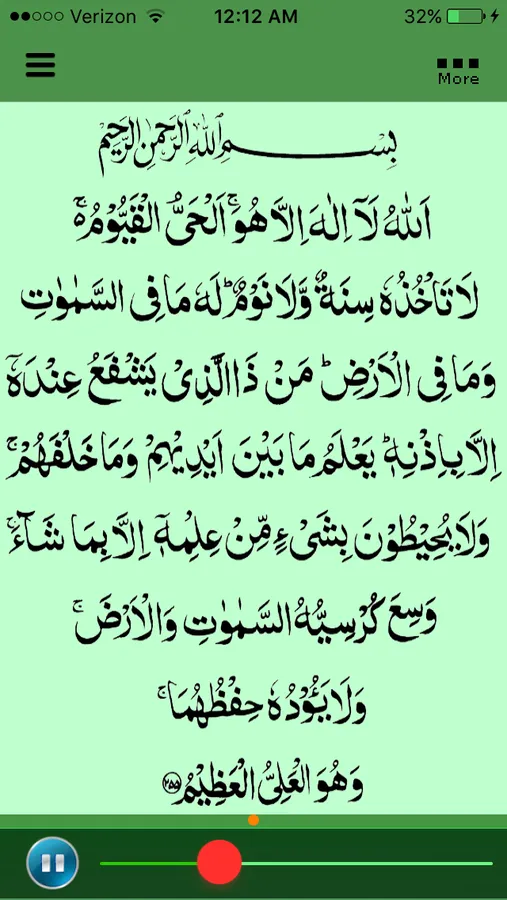 Verizon 12:12 AM 32%
More
بِسْمِ اللّٰهِ الرَّحْمٰنِ الرَّحِيْمِ
اَللّٰهُ لَاۤ اِلٰهَ اِلَّا هُوَۚ اَلْحَیُّ الْقَیُّوْمُ ەۚ
لَا تَاْخُذُهٗ سِنَةٌ وَّلَا نَوْمٌؕ لَهٗ مَا فِی السَّمٰوٰتِ
وَمَا فِی الْاَرْضِؕ مَنْ ذَا الَّذِیْ یَشْفَعُ عِنْدَهٗۤ
اِلَّا بِاِذْنِهٖؕ یَعْلَمُ مَا بَیْنَ اَیْدِیْهِمْ وَمَا خَلْفَهُمْۚ
وَلَا یُحِیْطُوْنَ بِشَیْءٍ مِّنْ عِلْمِهٖۤ اِلَّا بِمَا شَآءَۚ
وَسِعَ كُرْسِیُّهُ السَّمٰوٰتِ وَالْاَرْضَۚ
وَلَا یَـُٔوْدُهٗ حِفْظُهُمَاۚ
وَهُوَ الْعَلِیُّ الْعَظِیْمُ ۲۵۵